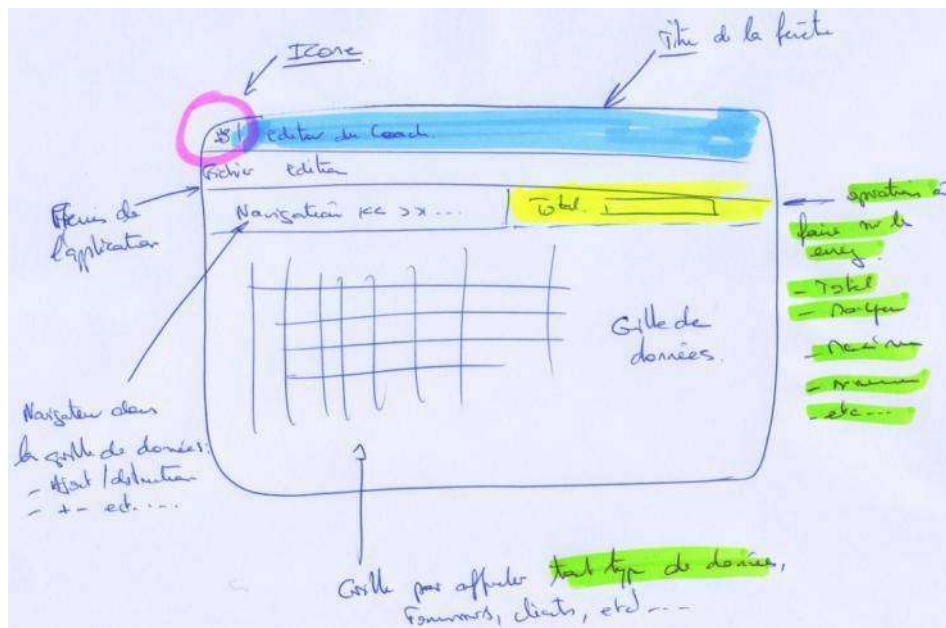 Icone
Titre de la fenêtre
editeur du Coach.
Fichier edition
Menus de
l'application
Navigation << >> ...
Total.
opérations à
faire sur les
enreg.
- Total
- Moyen
- Maximum
- Minimum
- etc...
Grille de
données.
Navigateur dans
la grille de données:
- Ajout / destruction
- + - ect.....
Grille pour afficher tout type de données,
Fournisseurs, clients, etc ----